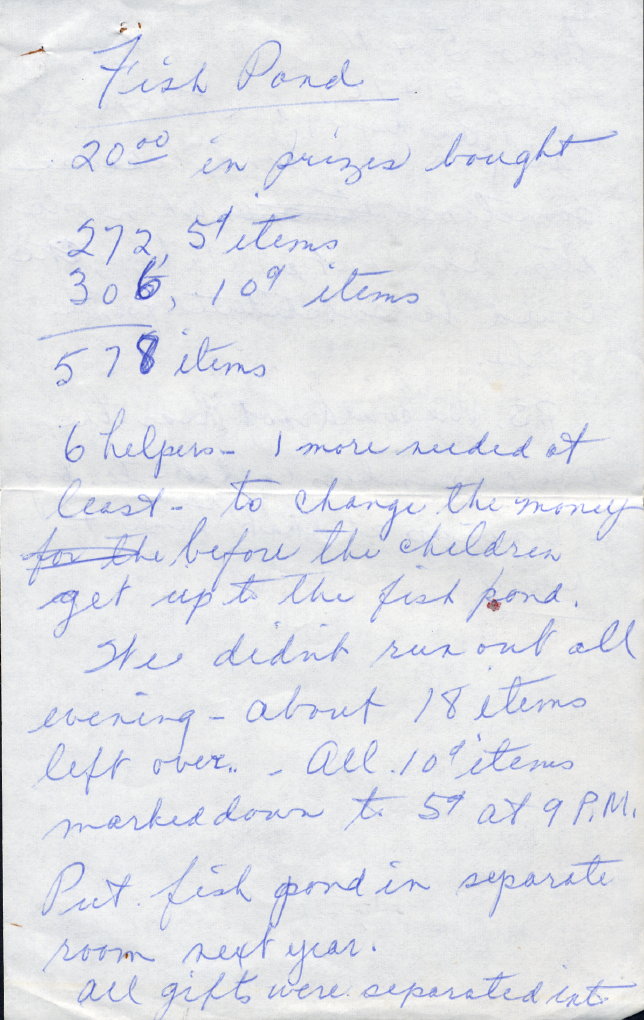 Fish Pond
20.00 in prizes bought
272, 5¢ items
306, 10¢ items
578 items
6 helpers - 1 more needed at
least - to change the money
for the before the children
get up to the fish pond.
We didn't run out all
evening - about 18 items
left over.. - All 10¢ items
marked down to 5¢ at 9 P.M.
Put fish pond in separate
room next year.
All gifts were separated into